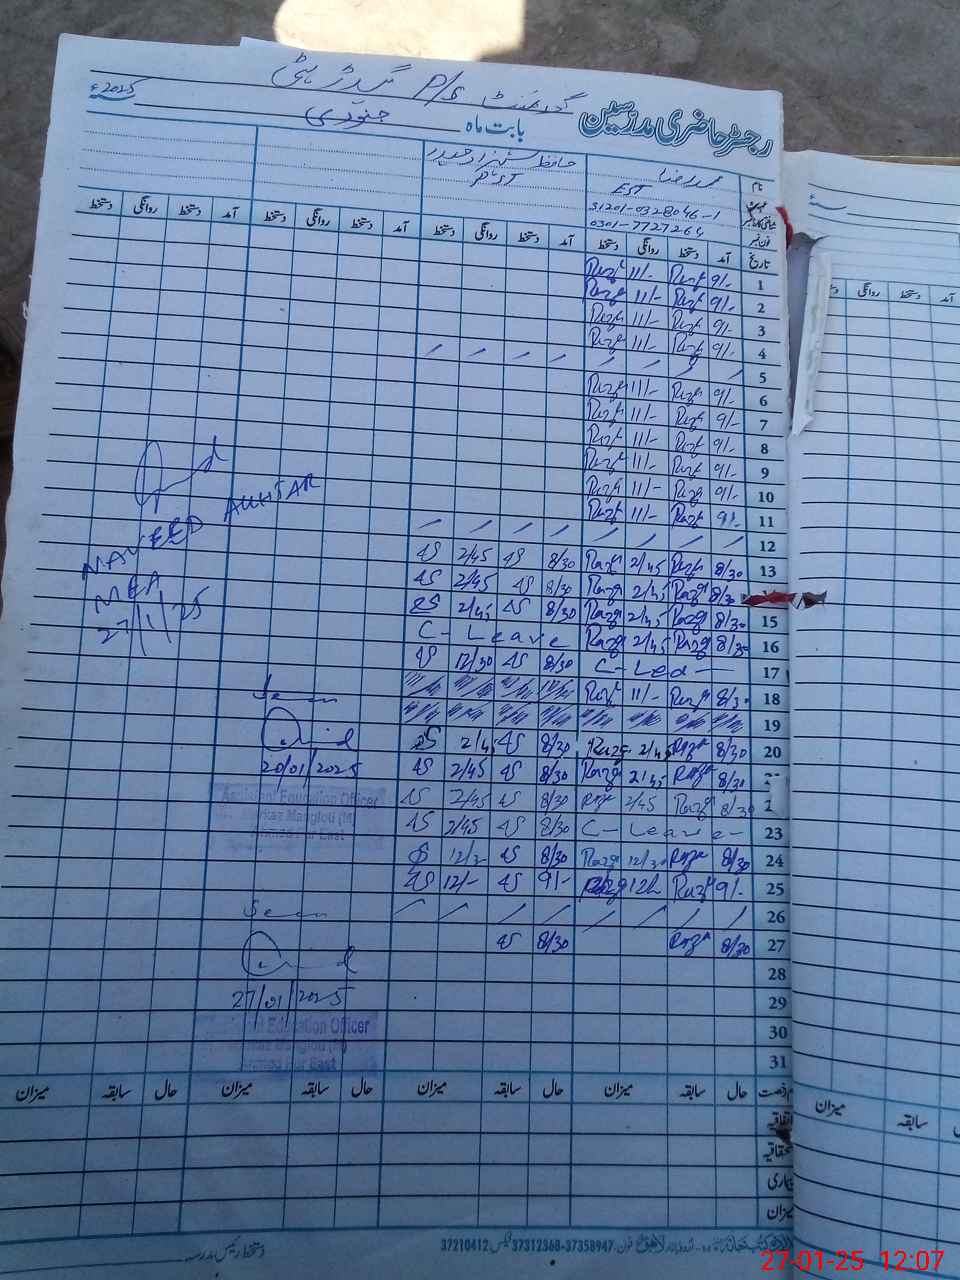 گورنمنٹ P/S گیدڑ ہٹی
رجسٹر حاضری مدرسین
بابت ماہ جنوری 2025ء
نام محمد رضا حافظ شہزاد حیدر
EST PST
31201-0328046-1
فون نمبر 0301-7727264
تاریخ آمد دستخط روانگی دستخط آمد دستخط روانگی دستخط آمد دستخط روانگی دستخط آمد دستخط روانگی دستخط
1 9/- Raza 11/- Raza
2 9/- Raza 11/- Raza
3 9/- Raza 11/- Raza
4 9/- Raza 11/- Raza
5
6 9/- Raza 11/- Raza
7 9/- Raza 11/- Raza
8 9/- Raza 11/- Raza
9 9/- Raza 11/- Raza
10 9/- Raza 11/- Raza
11 9/- Raza 11/- Raza
12
13 8/30 Raza 2/45 Raza 8/30 2/45
8/30 Raza 2/45 Raza 8/30 2/45
15 8/30 Raza 2/45 Raza 8/30 2/45
16 8/30 Raza 2/45 Raza C-Leave
17 C-Lea 8/30 12/30
18 8/30 Raza 11/- Raza
19
20 8/30 Raza 2/45 Raza 8/30 2/45
8/30 Raza 2/45 Raza 8/30 2/45
8/30 Raza 2/45 Raza 8/30 2/45
23 C-Leave 8/30 2/45
24 8/30 Raza 12/30 Raza 8/30
25 9/- Raza Raza 9/- 12/-
26
27 8/30 Raza 8/30
28
29
30
31
NAVEED AKHTAR
MEA
27/1/25
Seen
20/01/2025
Assistant Education Officer
Markaz Mangloti (M)
Ahmed Pur East
Seen
27/01/2025
Education Officer
Ahmed Pur East
حال سابقہ میزان حال سابقہ میزان حال سابقہ میزان حال سابقہ میزان
اتفاقیہ
بیماری
میزان
دستخط رئیس مدرسہ
فون: 37358947-37312368 فیکس: 37210412
آمد دستخط روانگی
میزان سابقہ
27-01-25 12:07